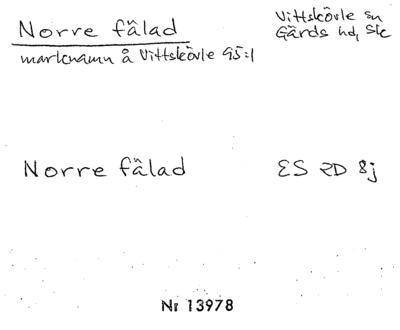 Norre fâlad
Vittskövle sn
Gärds hd, Sk
marknamn å Vittskövle 95:1
Norre fâlad
ES 2D 8j
Nr 13978